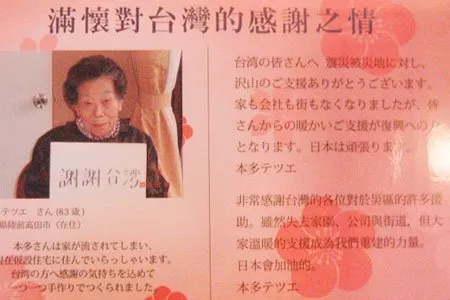 滿懷對台灣的感謝之情
謝謝台湾
テツエ さん(83歳)
県陸前高田市(在住)
本多さんは家が流されてしまい、
現在仮設住宅に住んでいらっしゃいます。
台湾の方へ感謝の気持ちを込めて
一つ一つ手作りでつくられました
台湾の皆さんへ 震災被災地に対し、
沢山のご支援ありがとうございます。
家も会社も街もなくなりましたが、皆
さんからの暖かいご支援が復興への力
となります。日本は頑張ります。
本多テツエ
非常感謝台灣的各位對於災區的許多援
助。雖然失去家園、公司與街道，但大
家溫暖的支援成為我們重建的力量。
日本會加油的。
本多テツエ